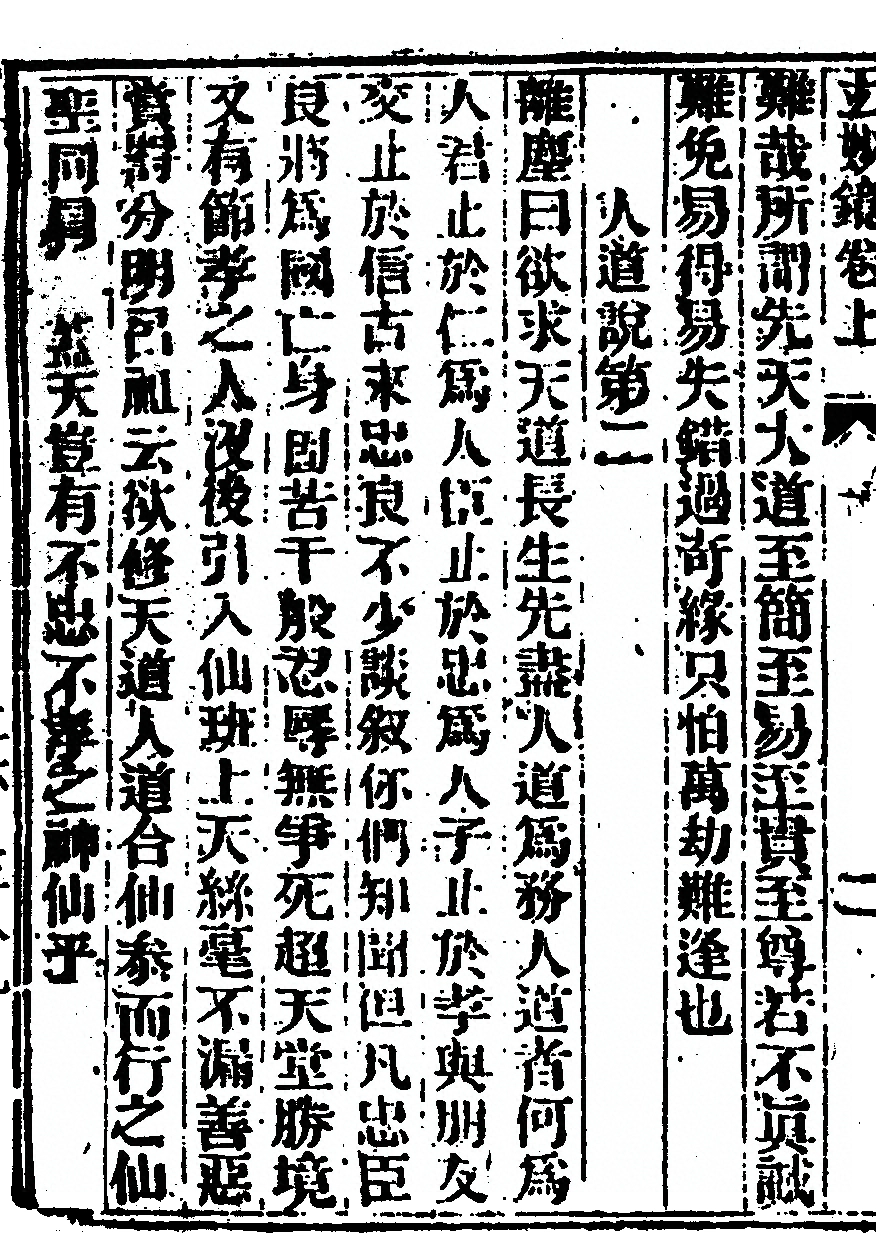 玄妙鏡卷上 二
難哉所謂先天大道至簡至易至貴至尊若不眞誠
難免易得易失錯過奇緣只怕萬劫難逢也
人道說第二
離塵曰欲求天道長生先盡人道爲務人道者何爲
人君止於仁爲人臣止於忠爲人子止於孝與朋友
交止於信古來忠良不少談敘你們知聞但凡忠臣
良將爲國亡身困苦千般忍辱無爭死超天堂勝境
又有節孝之人沒後引入仙班上天絲毫不漏善惡
賞罰分明呂祖云欲修天道人道合仙參而行之仙
聖同興 蓋天豈有不忠不孝之神仙乎